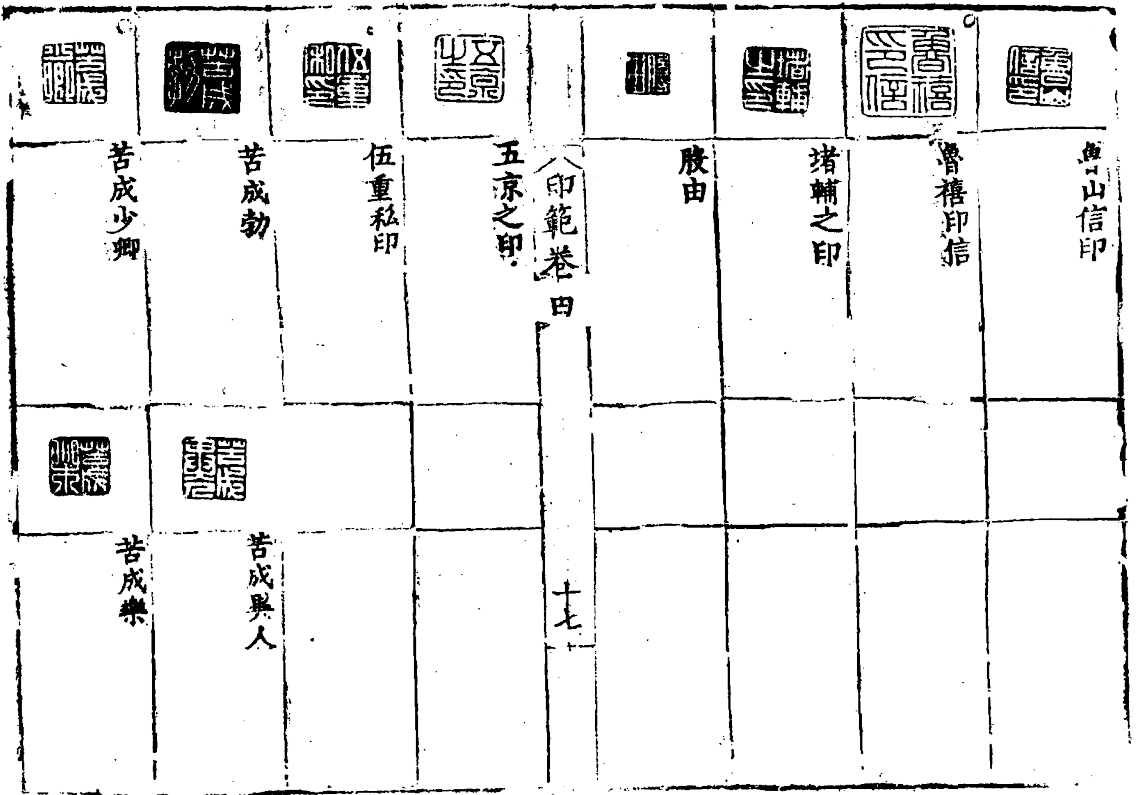 魯山信印
魯禧印信
堵輔之印
股由
印範卷四
十七
五京之印
伍重私印
苦成勃
苦成少卿
苦成樂